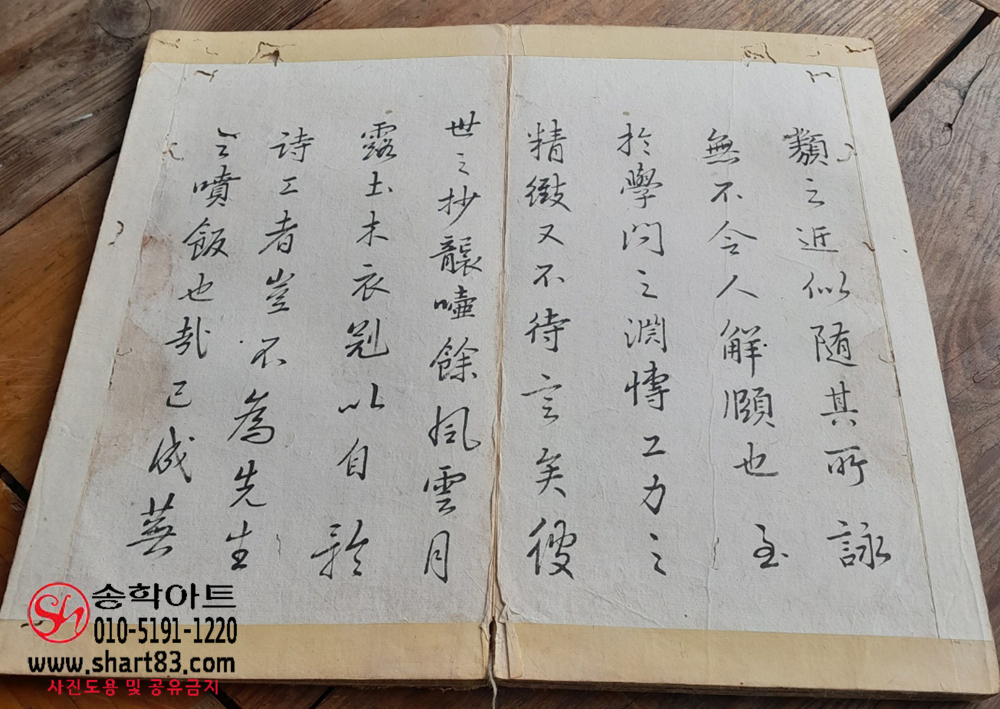 類之近似随其所詠
無不令人解頤也至
於學問之淵博工力之
精緻又不待言矣彼
世之抄襲唾餘風雲月
露土木衣冠以自矜
詩工者豈不為先生
之噴飯也哉已成蓋
송학아트
010-5191-1220
www.shart83.com
사진도용 및 공유금지